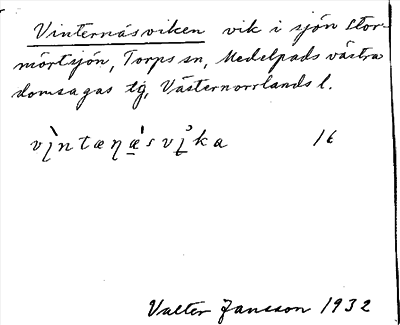 Vinternäsviken vik i sjön Stor-
mörtsjön, Torps sn, Medelpads västra
domsagas tg, Västernorrlands l.
vìntæŋæ̠'svi̠ka 16
Valter Jansson 1932